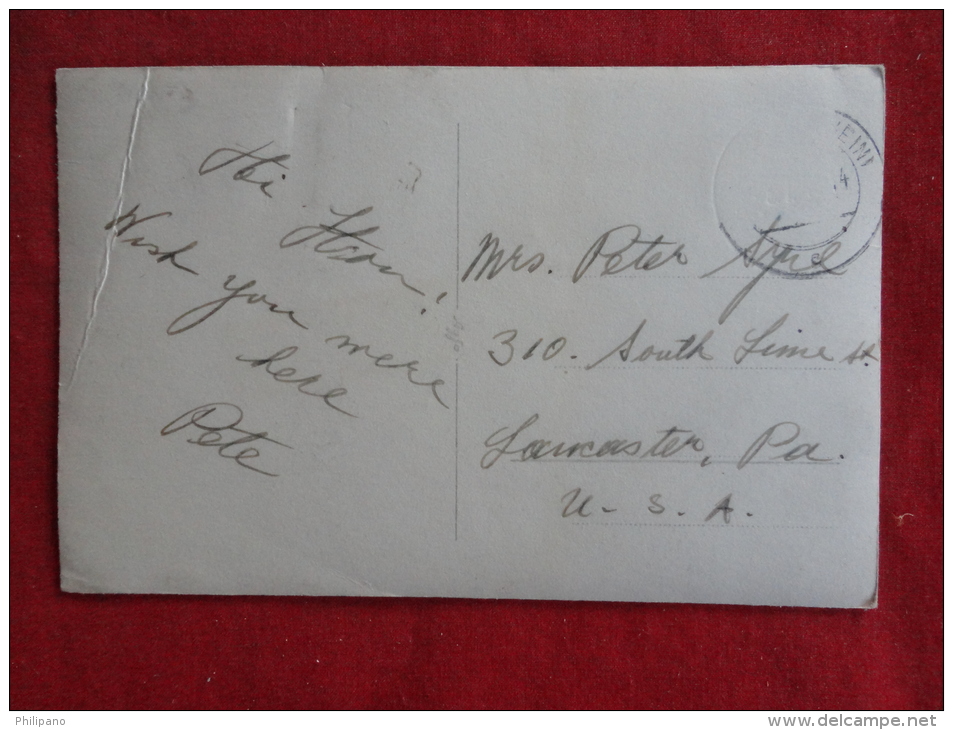 Hi Hon,
Wish you were
here
Pete
Mrs. Peter
310. South Lime St.
Lancaster, Pa.
U. S. A.
Philipano
www.delcampe.net